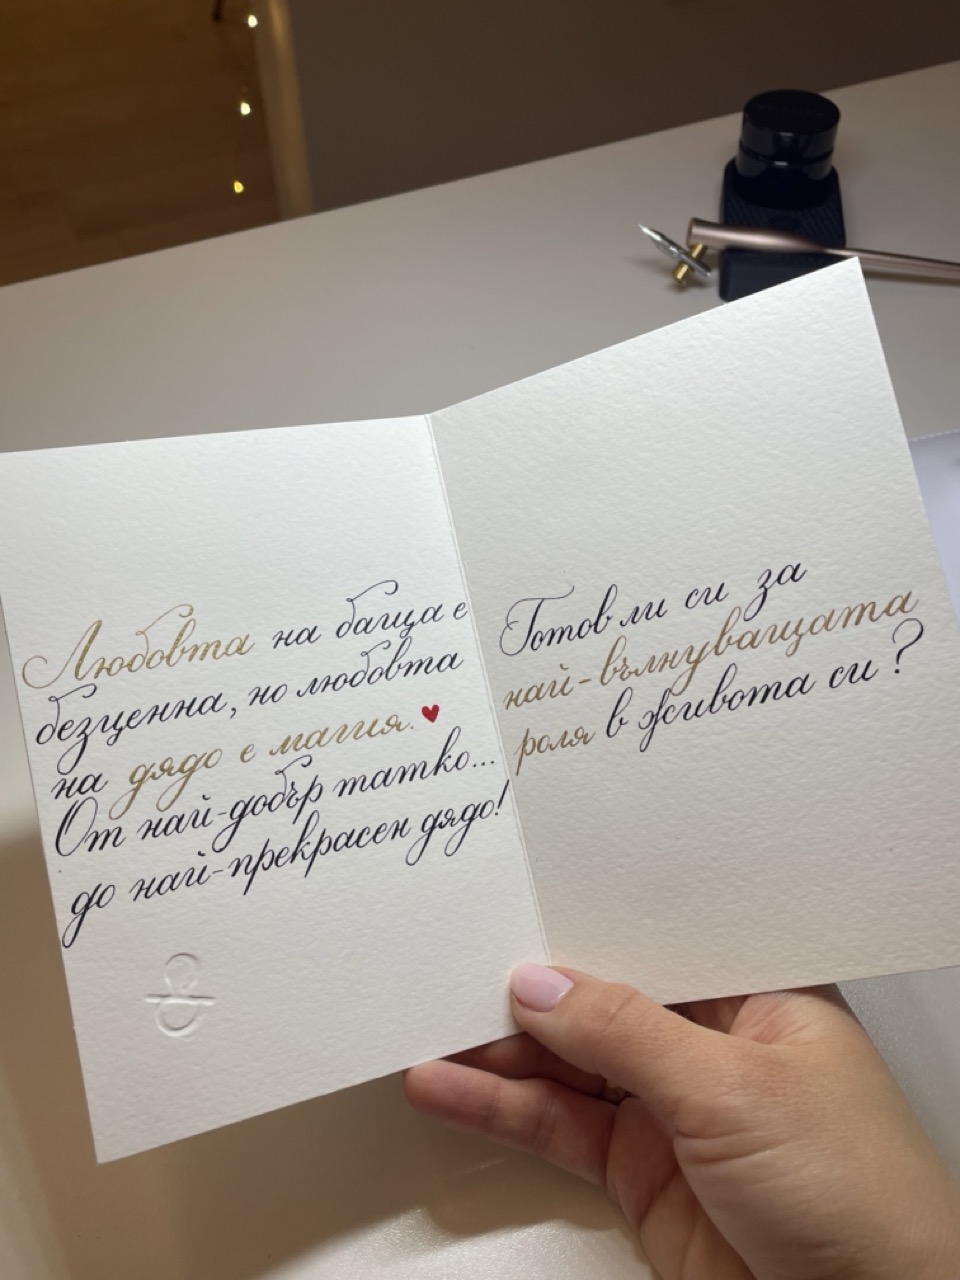 Любовта на баща е
безценна, но любовта
на дядо е магия.
От най-добър татко...
до най-прекрасен дядо!
Готов ли си за
най-вълнуващата
роля в живота си?